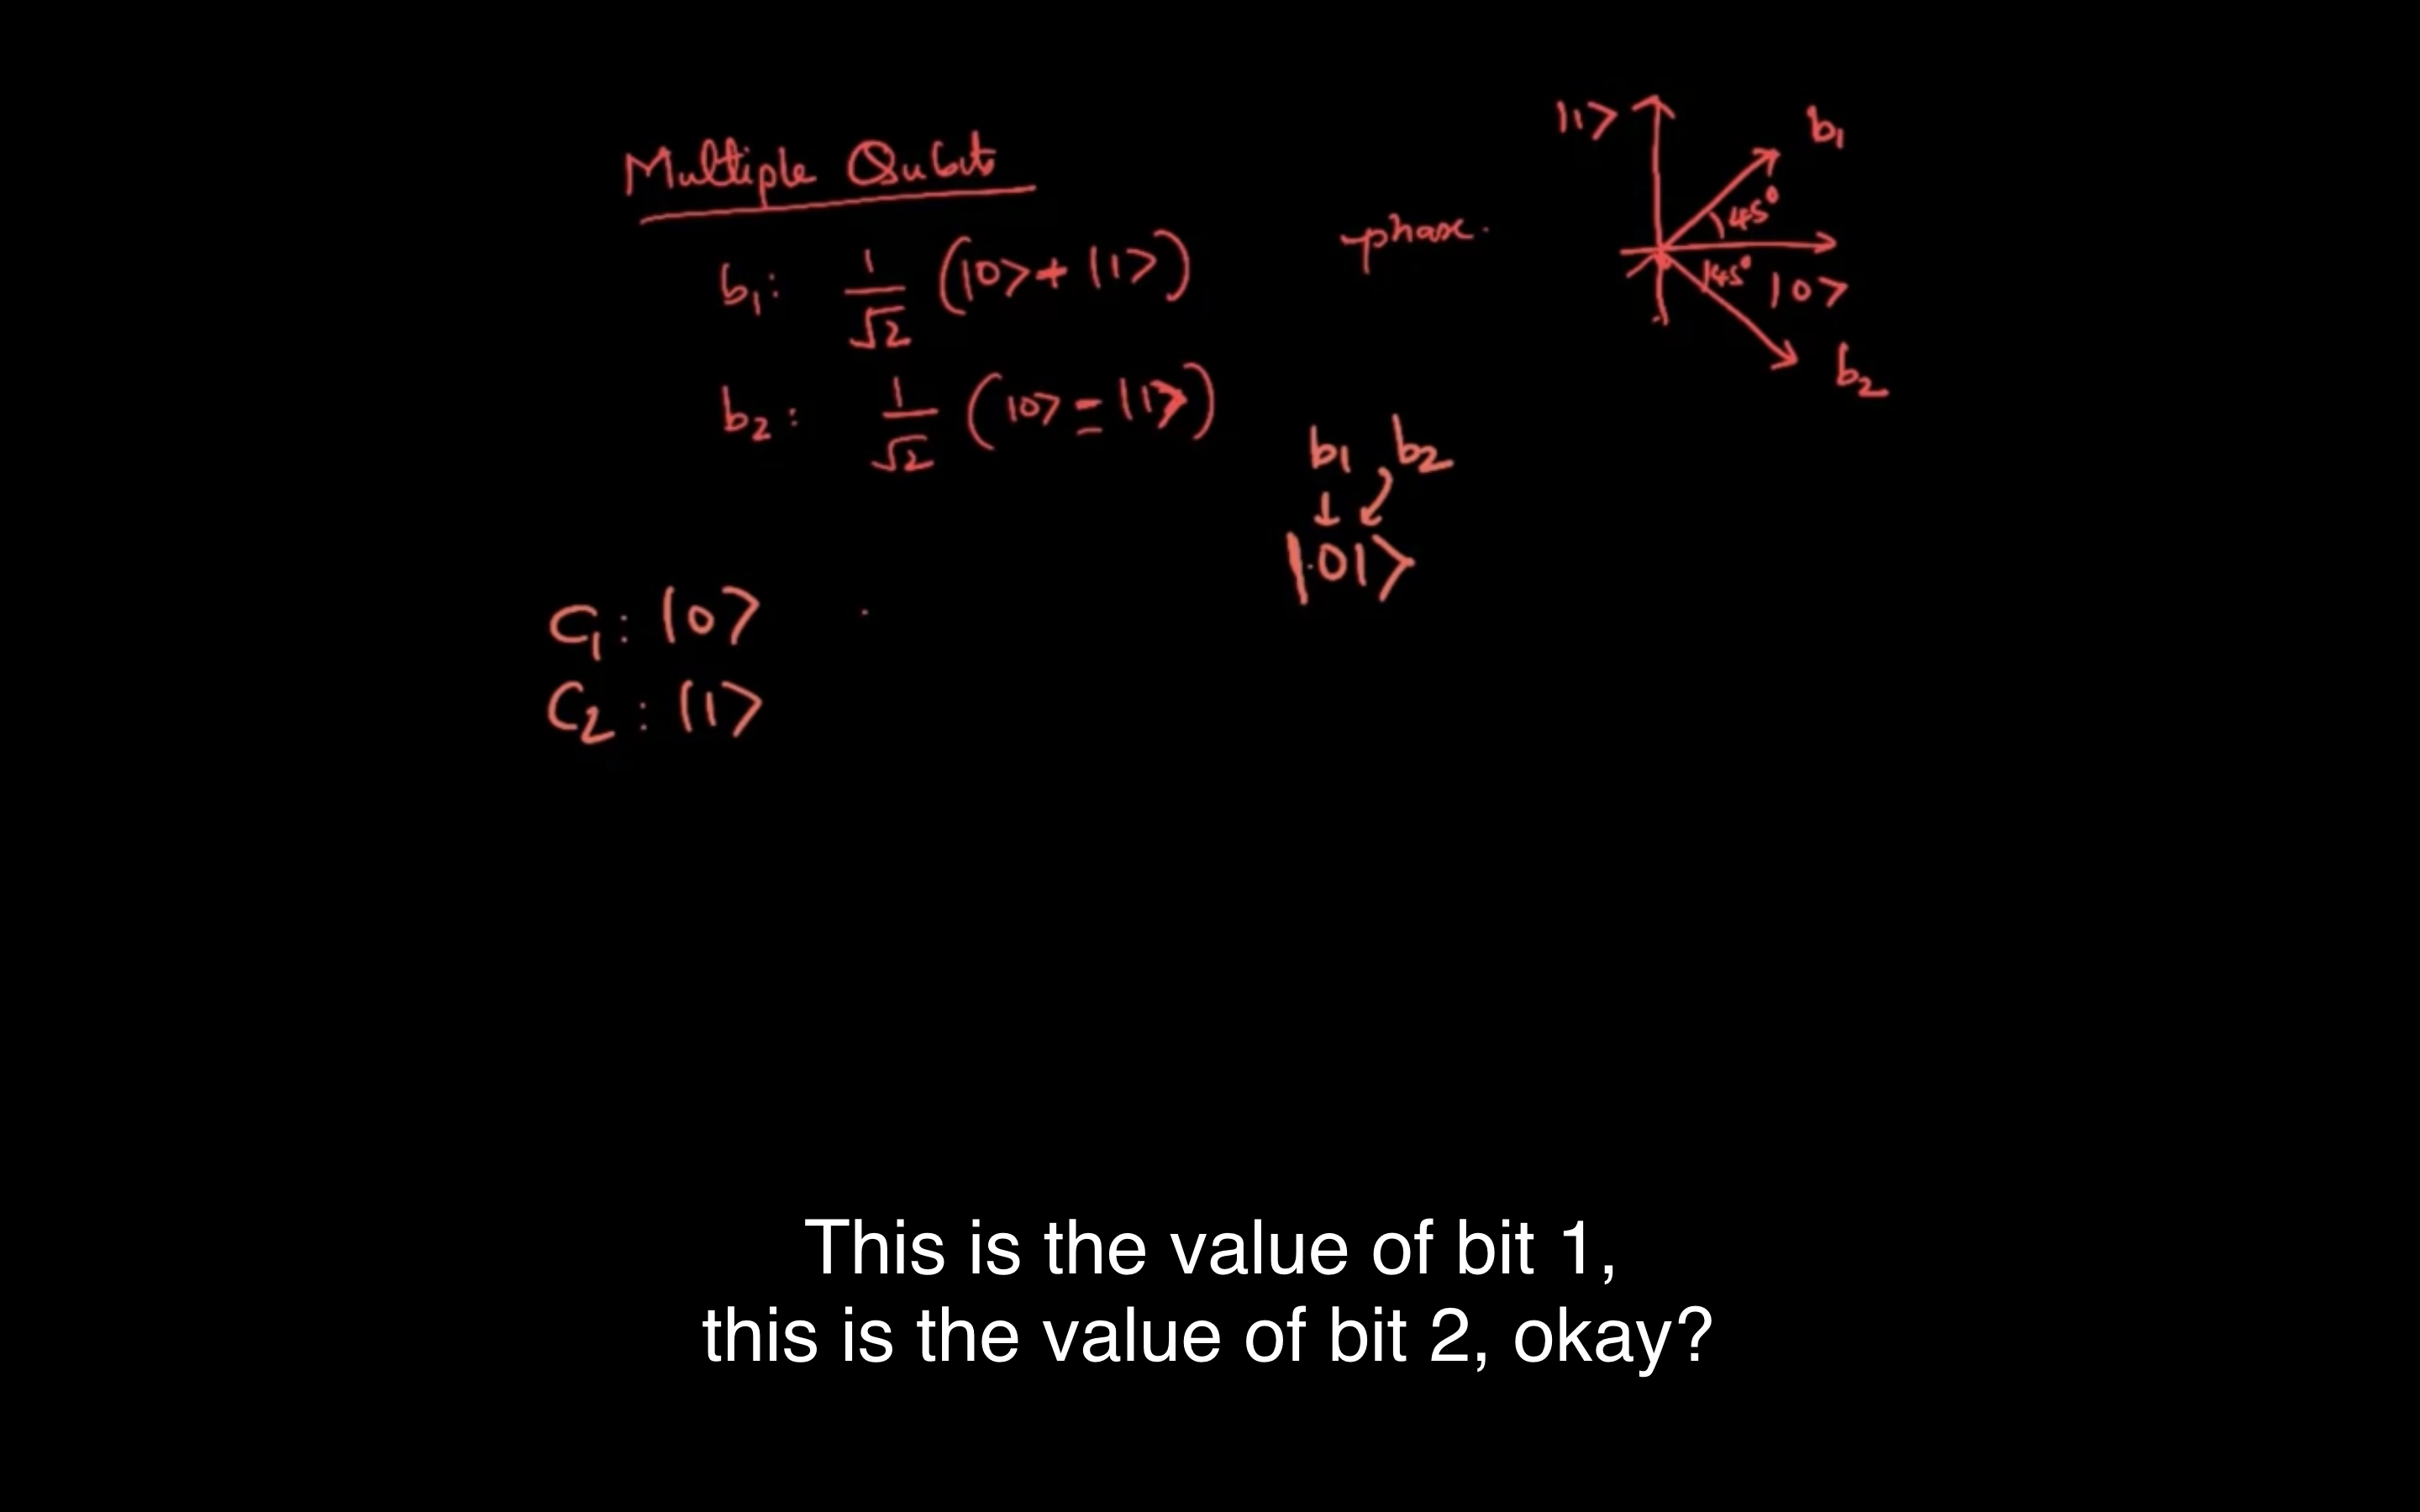 Multiple Qubit
b₁: 1/√2 (|0> + |1>)
phase.
|1>
b₁
45°
45°
|0>
b₂
b₂: 1/√2 (|0> - |1>)
b₁, b₂
|01>
C₁: |0>
C₂: |1>
This is the value of bit 1,
this is the value of bit 2, okay?